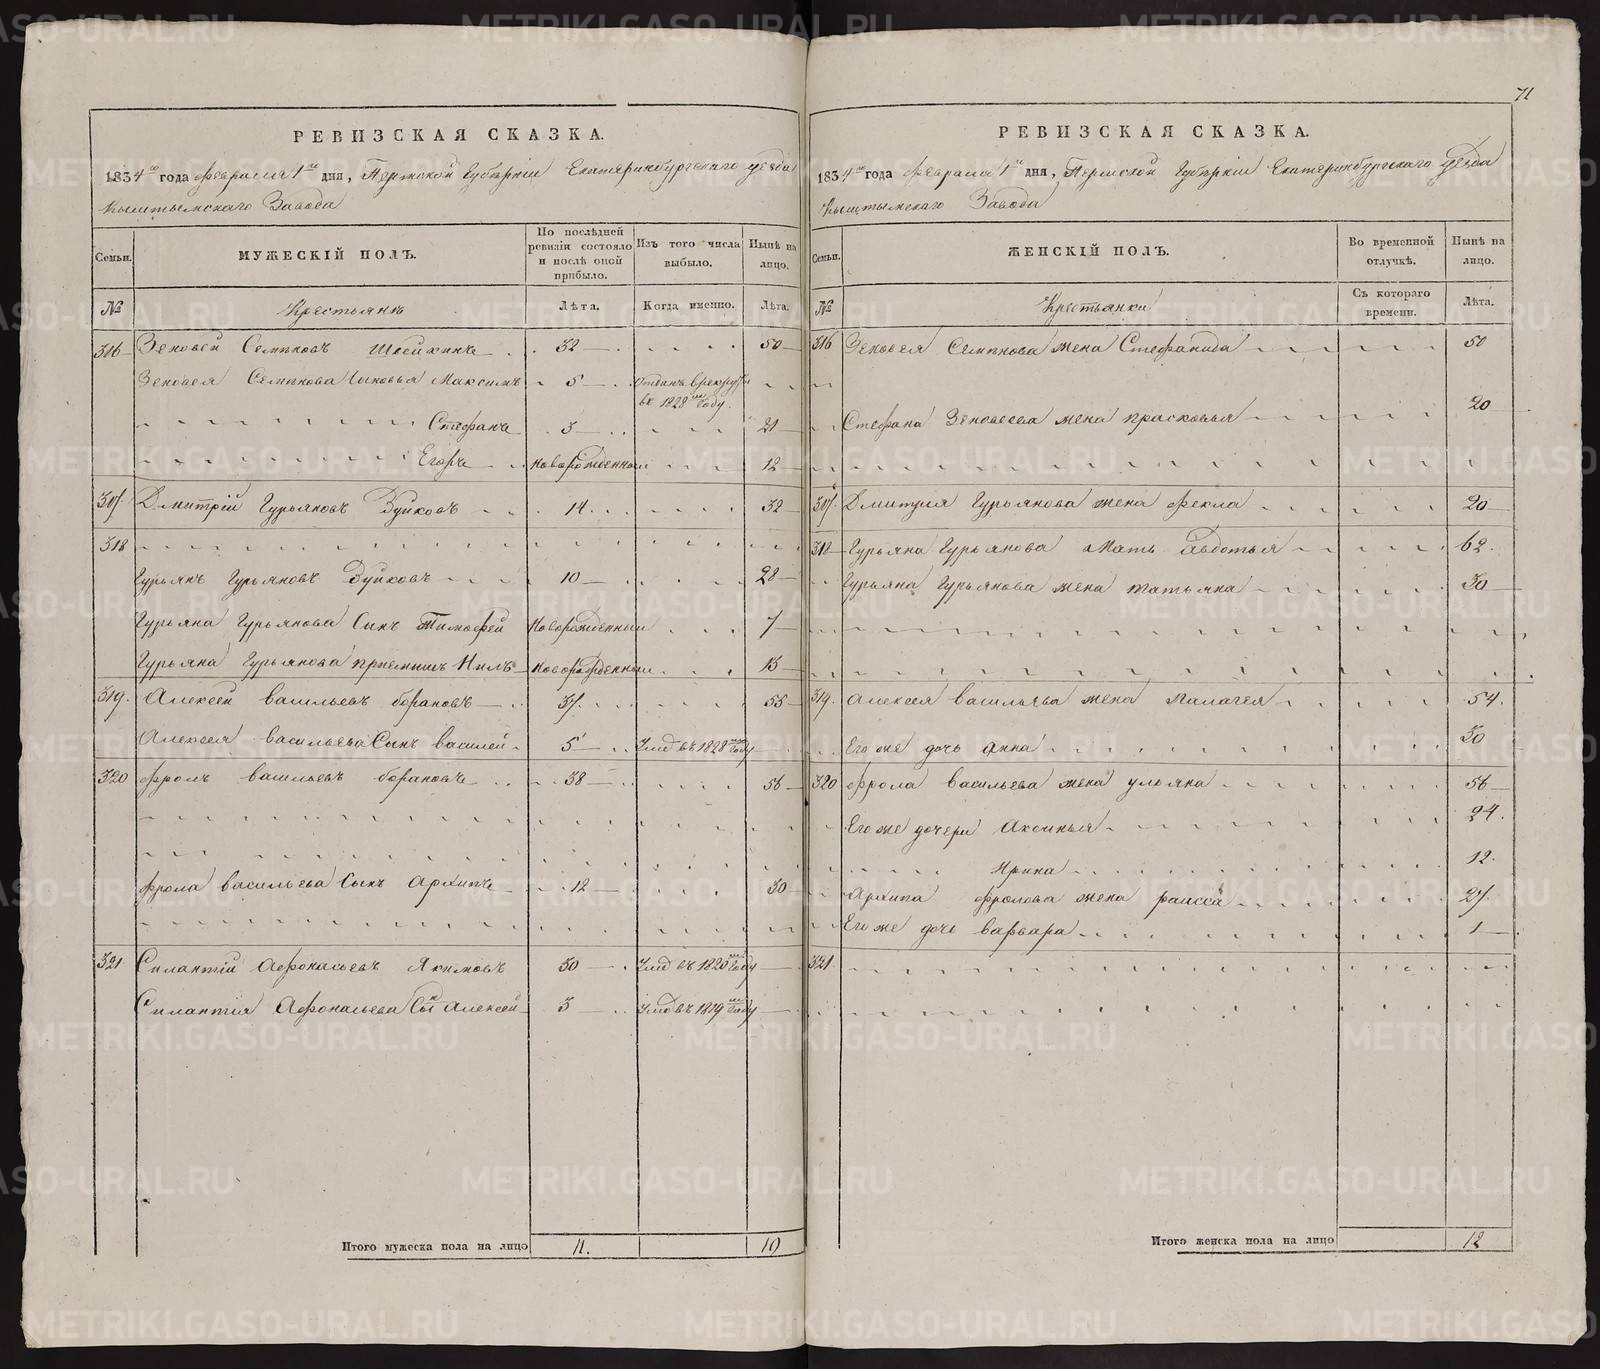 71
РЕВИЗСКАЯ СКАЗКА.
1834го года февраля 1го дня, Пермской Губерніи Екатеринбургскаго уезда
Кыштымскаго Завода
Семьи.
МУЖЕСКІЙ ПОЛЪ.
По послѣдней ревизіи состояло и послѣ оной прибыло.
Изъ того числа выбыло.
Нынѣ на лицо.
№ Крестьянъ Лѣта. Когда именно. Лѣта.
316 Зеновей Семыновъ 32 50
Зеновея Семынова сыновья Максимъ 5 Отданъ в рекруты въ 1828м году.
Стефанъ 3 21
Егоръ новорожденный 12
317 Дмитрій Гурьяновъ Зуйковъ 14 32
318
Гурьянъ Гурьяновъ Зуйковъ 10 28
Гурьяна Гурьянова Сынъ Тимофей Новорожденный 7
Гурьяна Гурьянова приемышъ Нилъ новорожденный 13
319. Алексей васильевъ борановъ 37 55
Алексея васильева Сынъ василей 5 Умѳ въ 1828м году
320 фролъ васильевъ борановъ 38 56
фрола васильева Сынъ Архипъ 12 30
321 Силантій Афонасьевъ Якимовъ 50 Умѳ въ 1820м году
Силантія Афонасьева Сынъ Алексей 3 Умѳ въ 1819м году
Итого мужеска пола на лицо 11. 10
РЕВИЗСКАЯ СКАЗКА.
1834го года февраля 1го дня, Пермской Губерніи Екатеринбургскаго уезда
Кыштымскаго Завода
Семьи.
ЖЕНСКІЙ ПОЛЪ.
Во временной отлучкѣ.
Нынѣ на лицо.
№ Крестьянки Съ котораго времени. Лѣта.
316 Зеновея Семынова жена Стефанида 50
Стефана Зеновеева жена прасковья 20
317 Дмитрия Гурьянова жена фекла 20
318 Гурьяна Гурьянова Мать Авдотья 62.
Гурьяна Гурьянова жена татьяна 30
319. Алексея васильева жена палагея 54.
Его же дочь Анна 30
320 фрола васильева жена ульяна 56
Его же дочери Аксинья 24.
Ирина 12.
Архипа фролова жена раисса 27.
Его же дочь варвара 1
321
Итого женска пола на лицо 12
METRIKI.GASO-URAL.RU